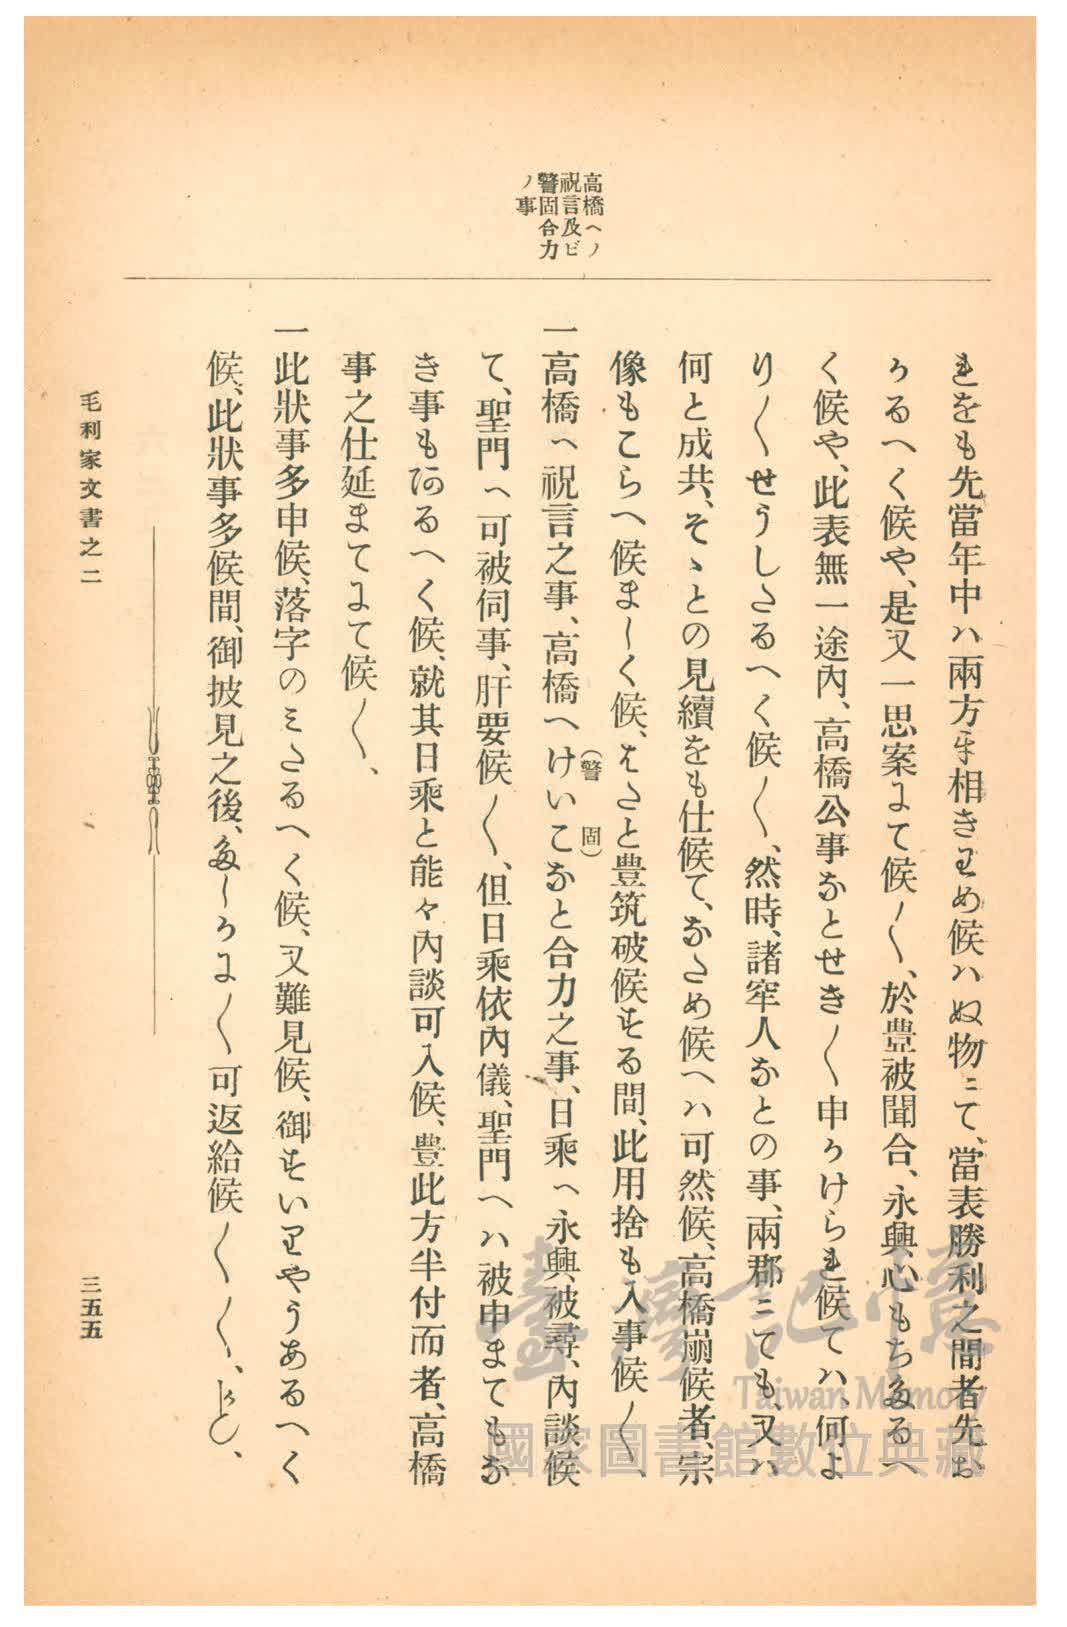 高橋ヘノ
祝言及ビ
警固合力
ノ事
れをも先當年中ハ兩方手相きわめ候ハぬ物ニて、當表勝利之間者先お
かるへく候や、是又一思案にて候〳〵、於豊被聞合、永興心もちたるへ
く候や、此表無一途内、高橋公事なとせき〳〵申かけられ候てハ、何よ
り〳〵せうしたるへく候〳〵、然時、諸牢人なとの事、兩郡ニても、又ハ
何と成共、そゝとの見續をも仕候て、なため候ヘハ可然候、高橋崩候者、宗
像もこらへ候ましく候、はたと豊筑破候する間、此用捨も入事候〳〵、
一高橋ヘ祝言之事、高橋へけいこなと合力之事、日乘ヘ永興被尋、内談候
(警固)
て、聖門ヘ可被伺事、肝要候〳〵、但日乘依内儀、聖門ヘハ被申まてもな
き事もあるへく候、就其日乘と能々内談可入候、豊此方半付而者、高橋
事之仕延まてにて候〳〵、
一此狀事多申候、落字のミたるへく候、又難見候、御すいりやうあるへく
候、此狀事多候間、御披見之後、たしかに〳〵可返給候〳〵〳〵、かしく、
毛利家文書之二
三五五
臺灣記憶
Taiwan Memory
國家圖書館數位典藏